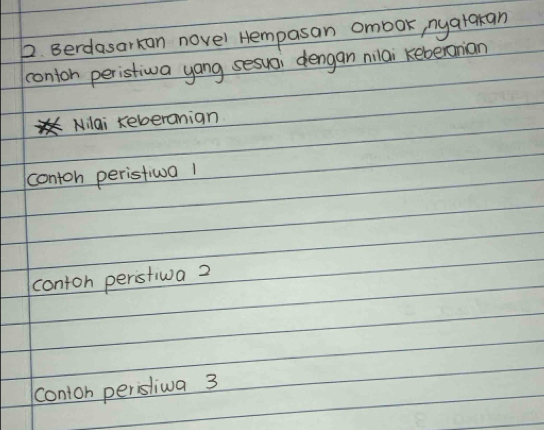 2. Berdasarkan novel Hempasan ombak, nyatakan
contoh peristiwa yang sesuai dengan nilai keberanian
* Nilai keberanian.
contoh peristiwa 1
contoh peristiwa 2
contoh peristiwa 3